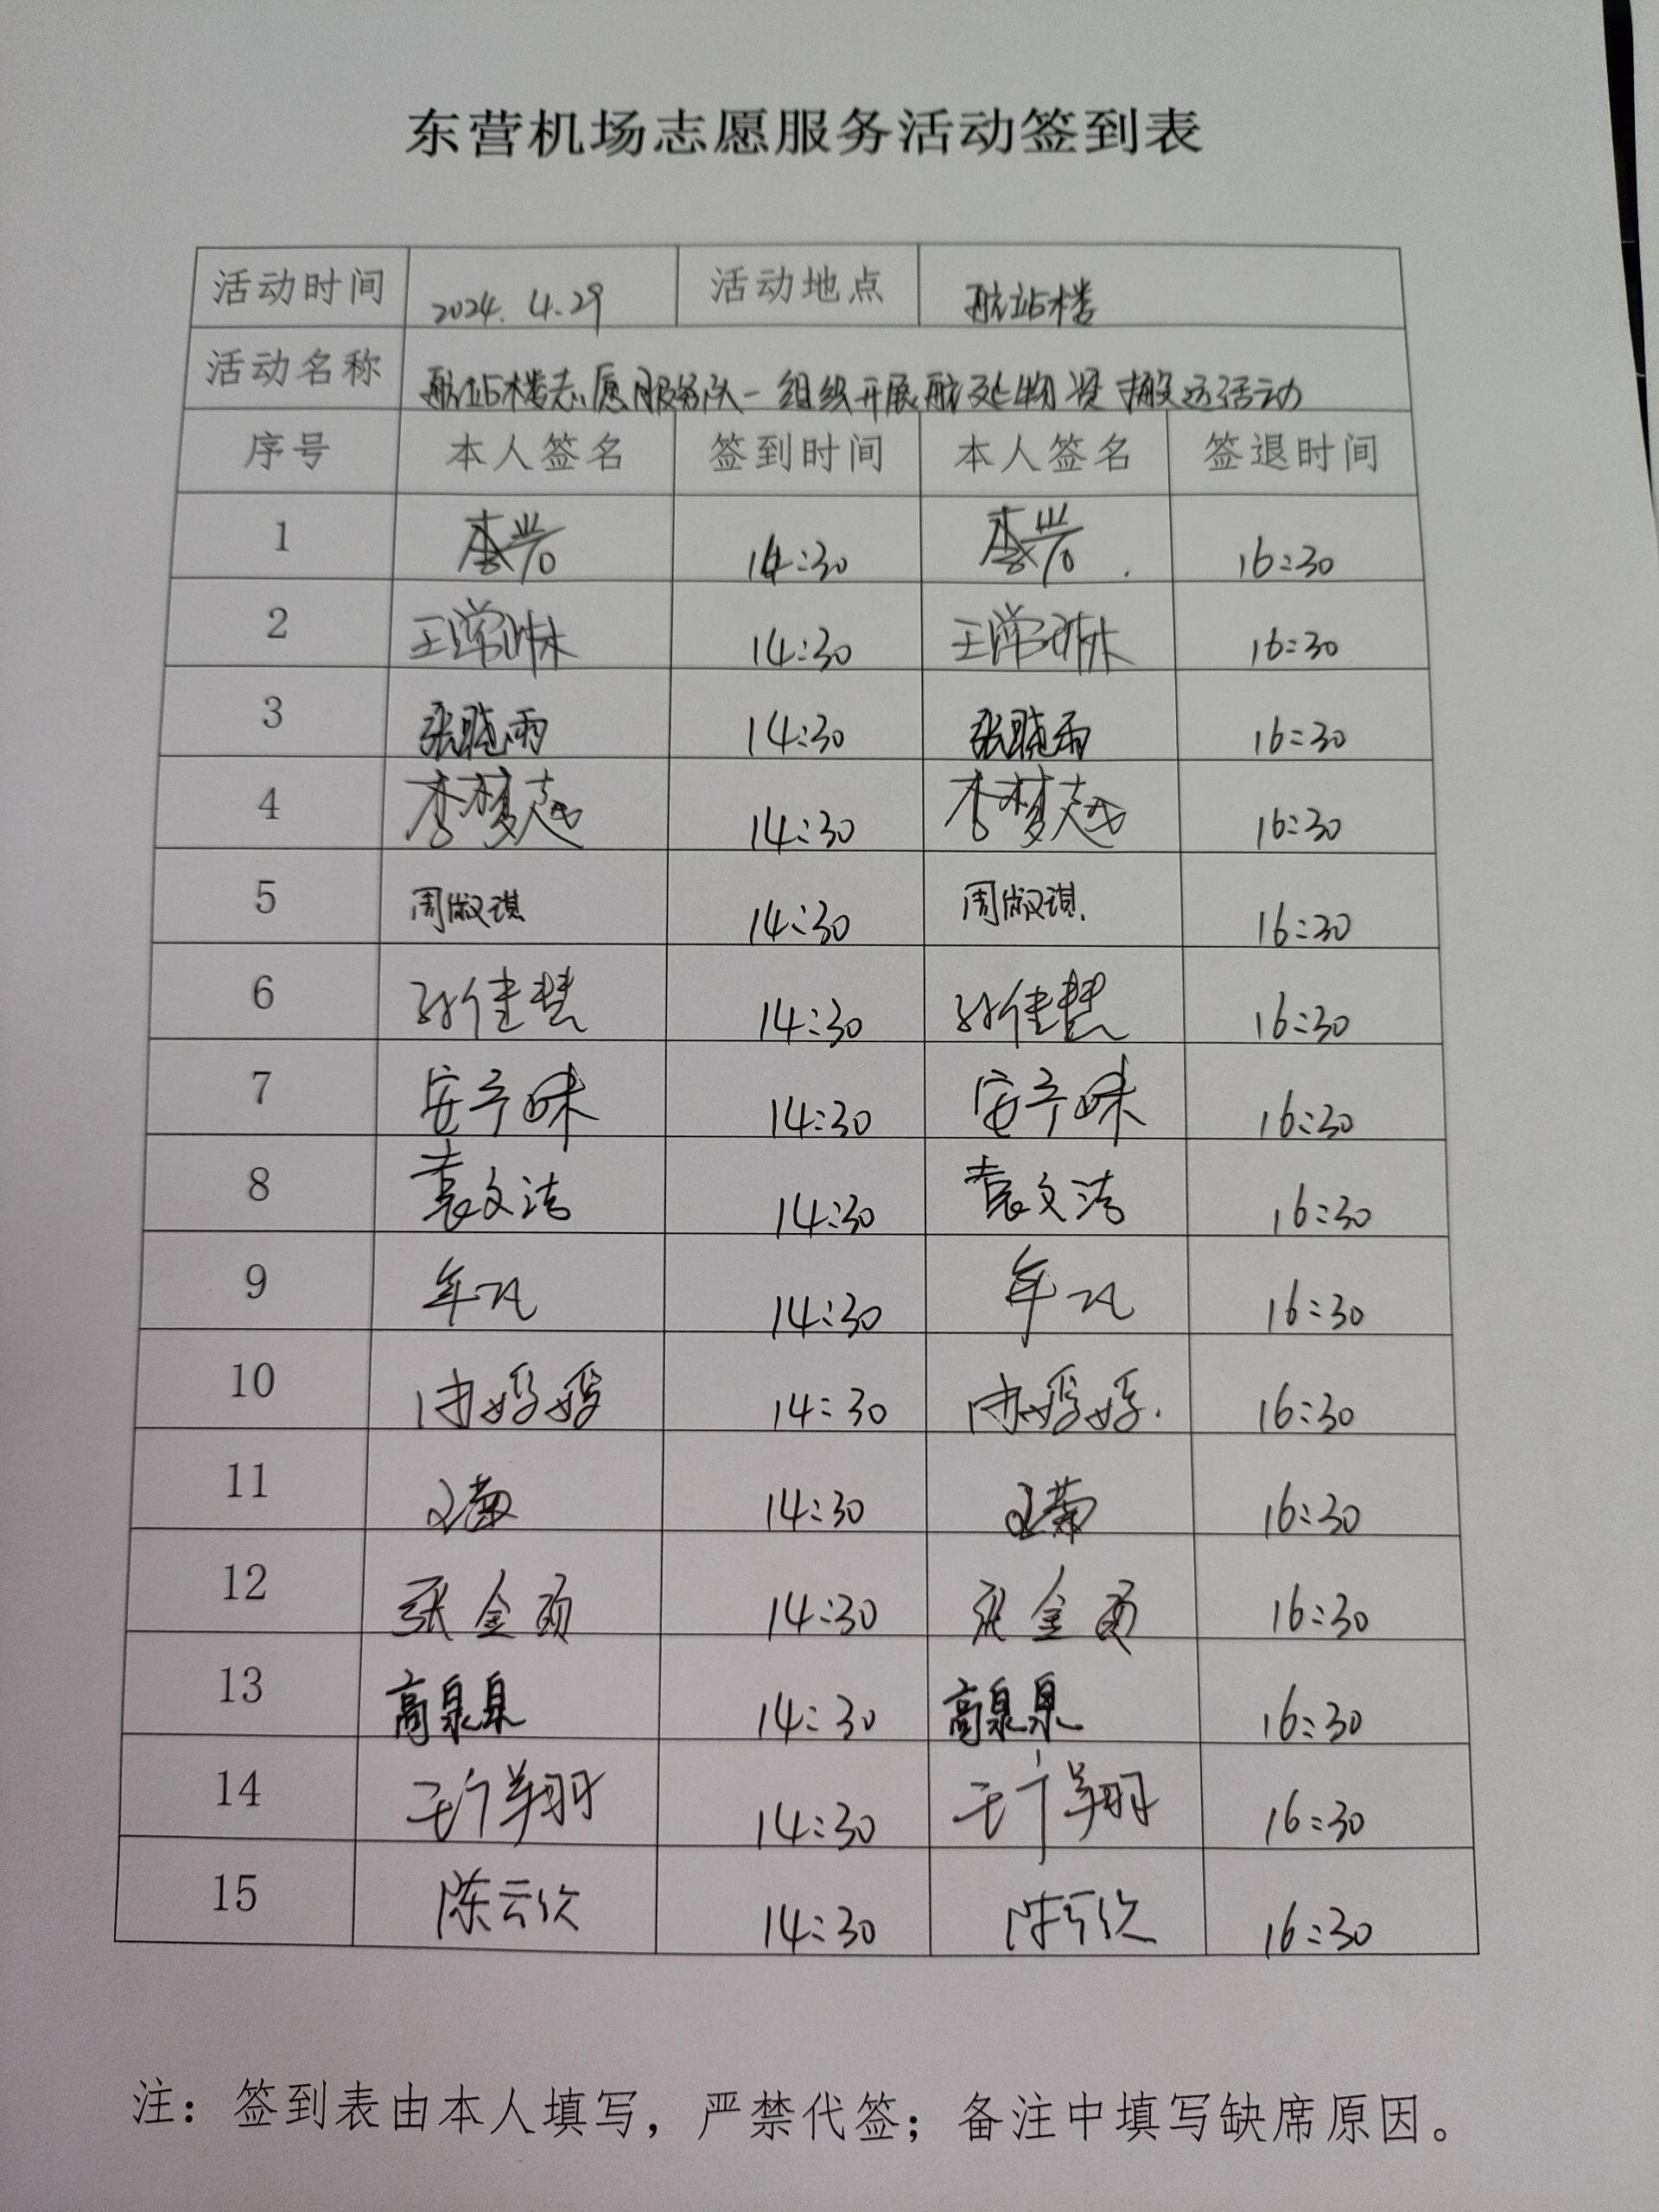 东营机场志愿服务活动签到表
活动时间 2024.4.29 活动地点 航站楼
活动名称 航站楼志愿服务队-组织开展航延物资搬运活动
序号 本人签名 签到时间 本人签名 签退时间
1 李岩 14:30 李岩 16:30
2 14:30 16:30
3 张晓雨 14:30 张晓雨 16:30
4 李梦越 14:30 李梦越 16:30
5 周淑琪 14:30 周淑琪 16:30
6 孙佳慧 14:30 孙佳慧 16:30
7 14:30 16:30
8 袁文洁 14:30 袁文洁 16:30
9 14:30 16:30
10 14:30 16:30
11 14:30 16:30
12 张金 14:30 张金 16:30
13 高泉泉 14:30 高泉泉 16:30
14 14:30 16:30
15 陈云 14:30 陈云 16:30
注：签到表由本人填写，严禁代签；备注中填写缺席原因。